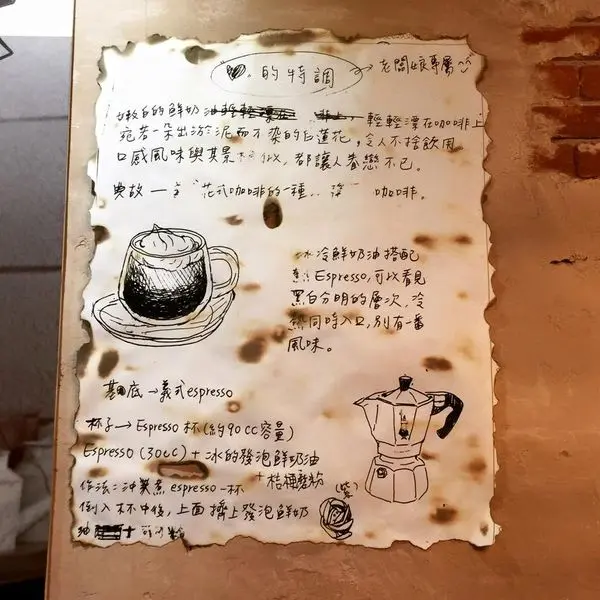 ♥. 的特調 → 老闆娘專屬
嫩白的鮮奶油 輕輕漂在咖啡上
宛若一朵出淤泥而不染的白蓮花，令人不捨飲用。
口感風味與其景 似，都讓人眷戀不已。
典故 花式咖啡的一種 咖啡。
冰冷鮮奶油搭配
Espresso，可以看見
黑白分明的層次，冷
熱同時入口，別有一番
風味。
基底 → 義式espresso
杯子 → Espresso 杯(約90cc容量)
Espresso (30cc) + 冰的發泡鮮奶油
+ 桔梗
作法：沖煮 espresso 一杯
(紫)
倒入杯中後，上面擠上發泡鮮奶
油 即可